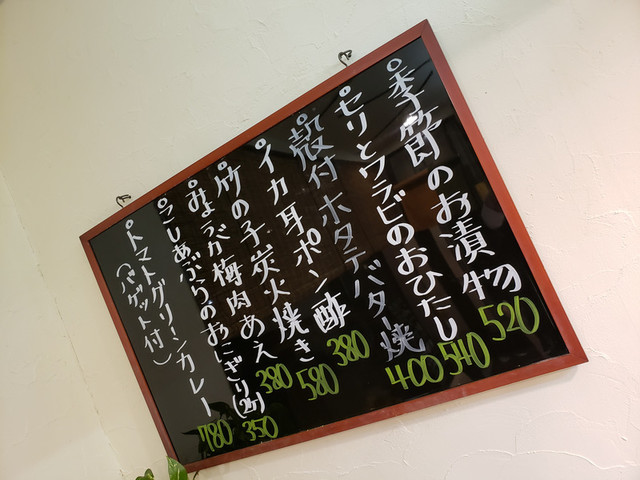 季節のお漬物 520
セリとワラビのおひたし 540
殻付ホタテバター焼 400
イカ耳ポン酢 380
竹の子炭火焼き 580
みょうが梅肉あえ 380
こしあぶらのおにぎり(2ケ) 350
トマトグリーンカレー 780
(バゲット付)